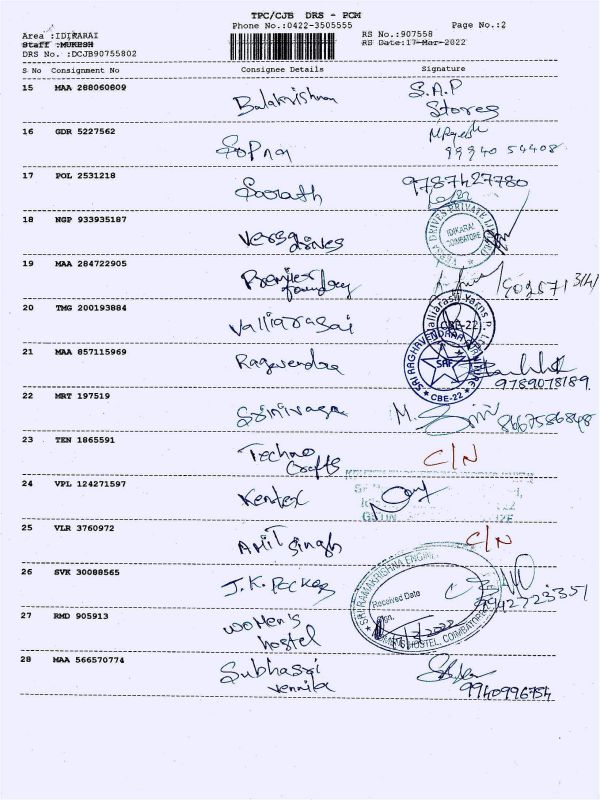 TPC/CJB DRS - PCM
Phone No.:0422-3505555 Page No.:2
Area :IDIKARAI RS No.:907558
Staff :MUKESH RS Date:17-Mar-2022
DRS No. :DCJB90755802
S No Consignment No Consignee Details Signature
15 MAA 288060809 Balakrishnan S.A.P
Stores
16 GDR 5227562 Sopna
99940 54408
17 POL 2531218 Sarath 9787427780
18 NGP 933935187 Versa drives VERSA DRIVES PRIVATE LIMITED
IDIKARAI
COIMBATORE
19 MAA 284722905 Premier
foundry
20 TMG 200193884 Valliarasai Valliarasi Yarns P. Ltd
CBE-22
21 MAA 857115969 Ragavendra SRI RAGHAVENDRAA
SAF
CBE-22
9789078189
22 MRT 197519 Srinivasa M. 8667586848
23 TEN 1865591 Techno C/N
Crafts
24 VPL 124271597 Kentex
25 VLR 3760972 Amit Singh C/N
26 SVK 30088565 J.K. SRI RAMAKRISHNA ENGINE
9942723351
Received Date
27 RMD 905913 Women's
hostel
Sign.
WOMENS HOSTEL, COIMBATORE
28 MAA 566570774 Subhassri
Vennila
9940996754